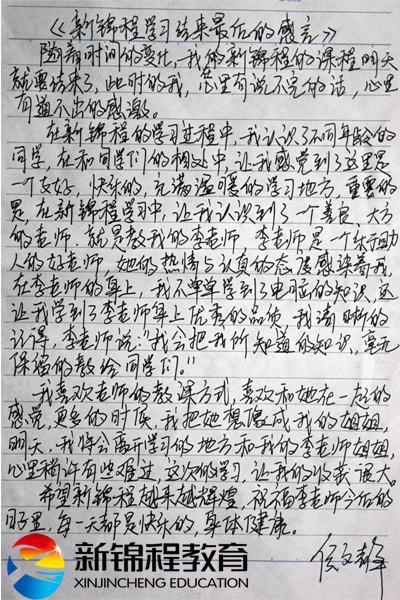 《新锦程学习结束最后的感言》
随着时间的变化,我的新锦程的课程明天
就要结束了,此时的我,心里有说不完的话,心里
有道不出的感激。
在新锦程的学习过程中,我认识了不同年龄的
同学,在和同学们的相处中,让我感觉到了这里是
一个友好,快乐的,充满温暖的学习地方,重要的
是,在新锦程学习中,让我认识到了一个善良,大方
的老师,就是教我的李老师,李老师是一个乐于助
人的好老师,她的热情与认真的态度感染着我,
在李老师的身上,我不单单学到了电脑的知识,还
让我学到了李老师身上优秀的品质,我清晰的
记得,李老师说:"我会把我所知道的知识,毫无
保留的教给同学们。"
我喜欢老师的教课方式,喜欢和她在一起的
感觉,更多的时候,我把她想像成我的姐姐,
明天,我将会离开学习的地方和我的李老师姐姐,
心里稍许有些难过,这次的学习,让我的收获很大。
希望新锦程越来越辉煌,祝福李老师今后的
日子里,每一天都是快乐的,身体健康。
新锦程教育
XINJINCHENG EDUCATION